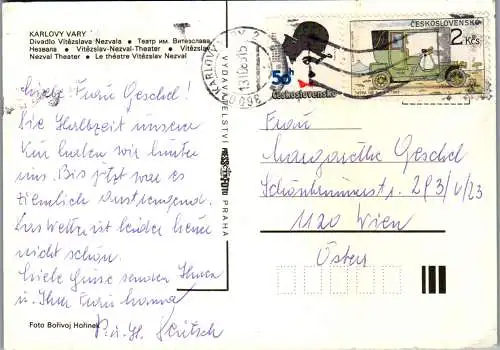 KARLOVY VARY
Divadlo Vítězslava Nezvala • Театр им. Витезслава
Незвала • Vítězslav-Nezval-Theater • Vítězslav
Nezval Theater • Le théatre Vítězslav Nezval
Liebe Frau Geschel!
Die Halbzeit unserer
Kur haben wir hinter
uns. Bis jetzt war es
ziemlich anstrengend.
Das Wetter ist leider heuer
nicht schön.
Liebe Grüsse senden Ihnen
u. Ihrer
P. u. H.
Foto Bořivoj Hořínek
VYDAVATELSTVÍ PRESSFOTO PRAHA
KARLOVY VARY 2
360 02
50
Československo
ČESKOSLOVENSKO
2 Kčs
Frau
Margarethe Geschel
293/4/23
1120 Wien
Österr.